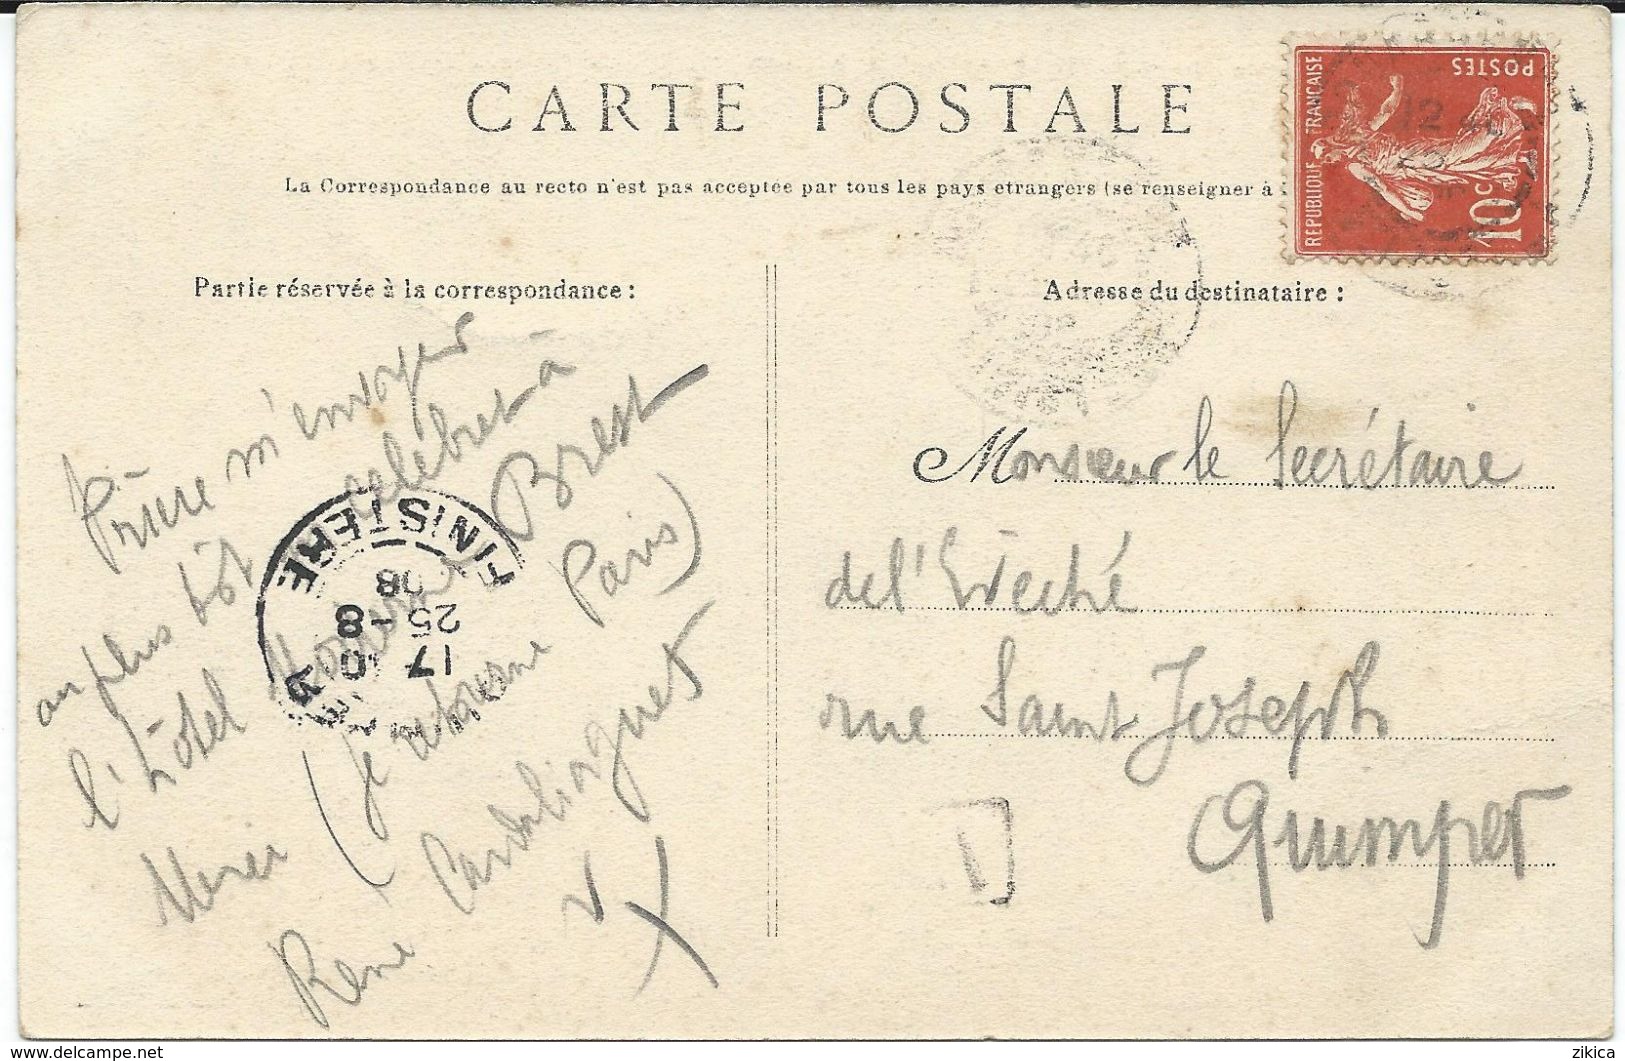 CARTE POSTALE
La Correspondance au recto n'est pas acceptée par tous les pays etrangers (se renseigner à
REPUBLIQUE FRANÇAISE
POSTES
10c
12
Partie réservée à la correspondance :
Prière m'envoyer
au plus tôt celebret à
l'hôtel Brest
Merci (je retourne Paris)
René Cardaliaguet
Adresse du destinataire :
Monsieur le Secrétaire
de l'Evêché
rue Saint Joseph
Quimper
FINISTERE
17
25-8
08
www.delcampe.net
zikica